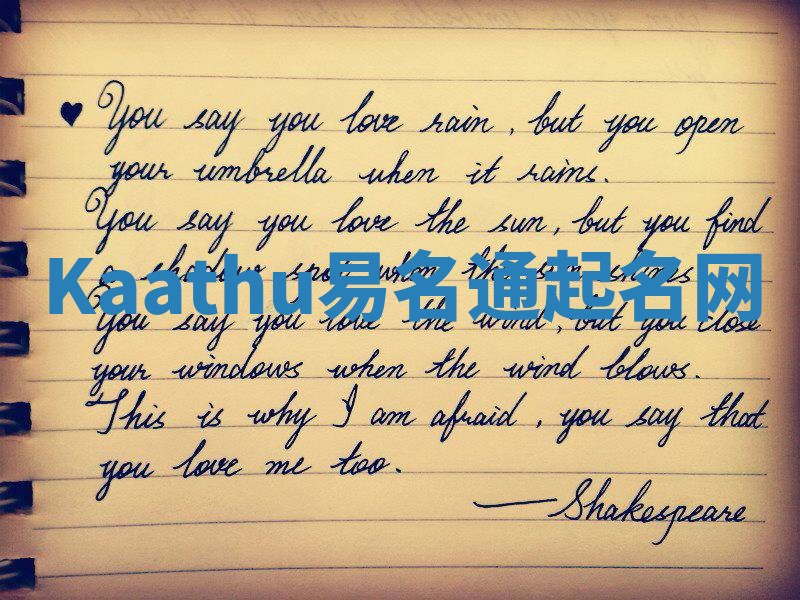 ♥ You say you love rain, but you open
your umbrella when it rains.
You say you love the sun, but you find
a shadow spot when the sun shines
Kaathu易名通起名网
You say you love the wind, but you close
your windows when the wind blows.
This is why I am afraid, you say that
you love me too.
—Shakespeare